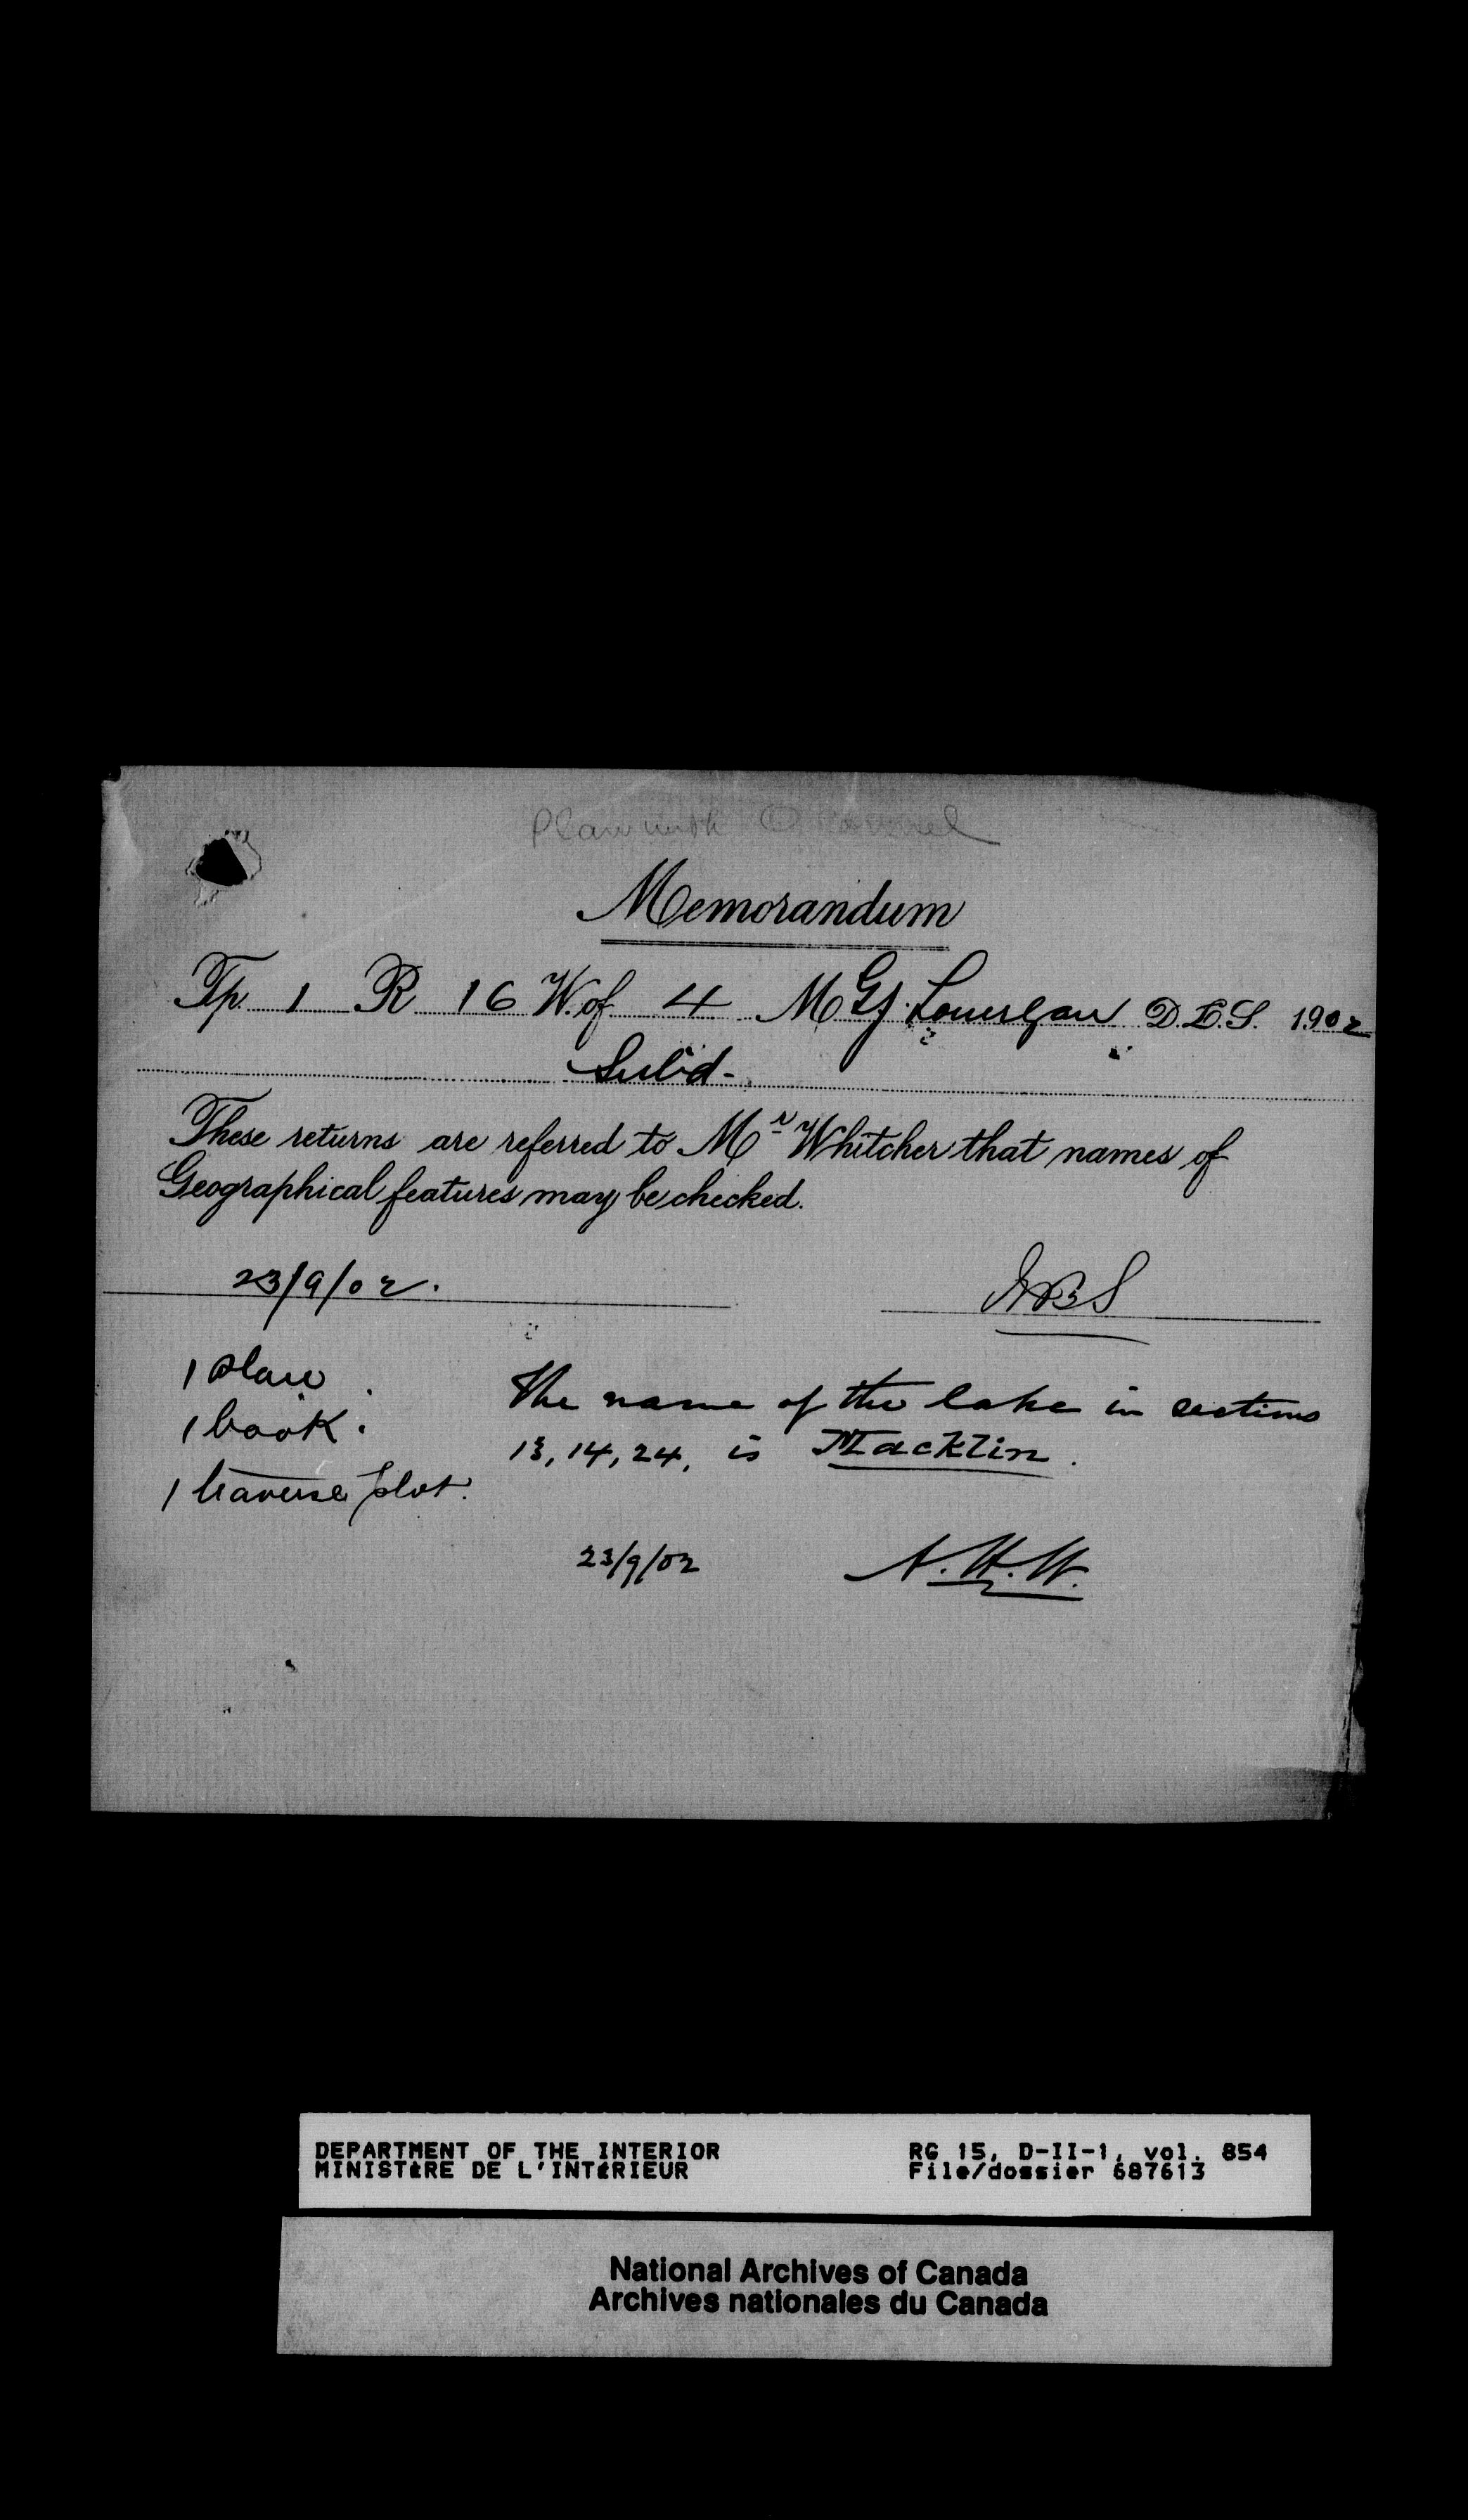 Plan with
Memorandum
Tp. 1 R 16 W. of 4 M G J. Lonergan D.L.S. 1902
Subd-
These returns are referred to Mr Whitcher that names of
Geographical features may be checked.
23/9/02.
1 plan
1 book.
1 traverse plot.
The name of the lake in sections
13, 14, 24, is Macklin.
23/9/02 A.H.W.
DEPARTMENT OF THE INTERIOR RG 15, D-II-1, vol. 854
MINISTÈRE DE L'INTÉRIEUR File/dossier 687613
National Archives of Canada
Archives nationales du Canada